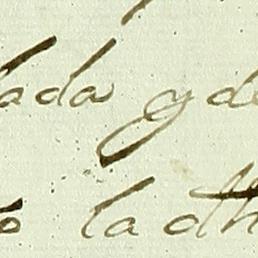 lada y de
o la dh